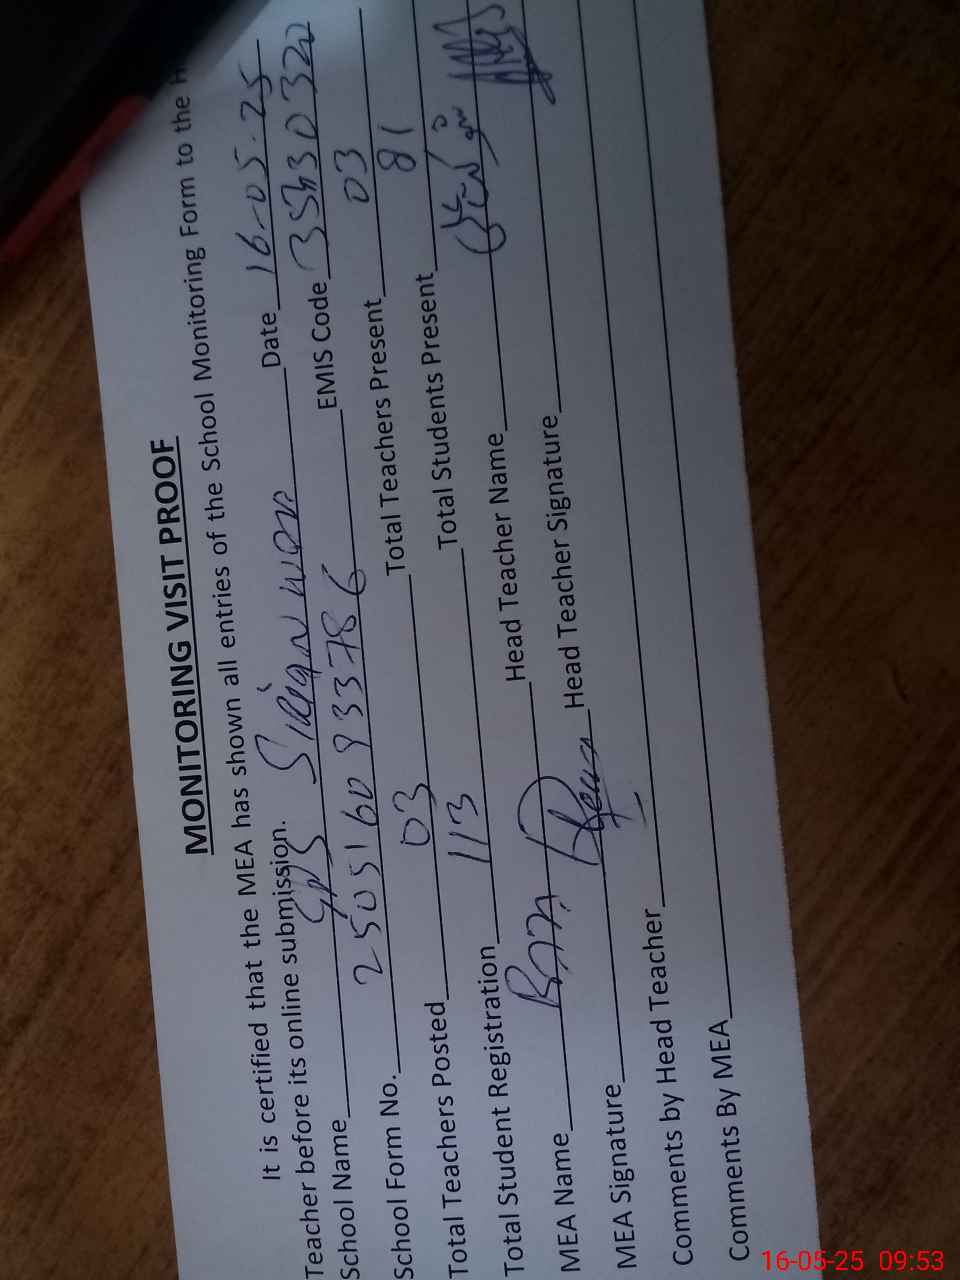 MONITORING VISIT PROOF
It is certified that the MEA has shown all entries of the School Monitoring Form to the H
Teacher before its online submission.
School Name GPS Date 16-05-25
School Form No. 2505160933786 EMIS Code 35330320
Total Teachers Posted 03 Total Teachers Present 03
Total Student Registration 113 Total Students Present 81
MEA Name Head Teacher Name
MEA Signature Head Teacher Signature
Comments by Head Teacher
Comments By MEA
16-05-25 09:53